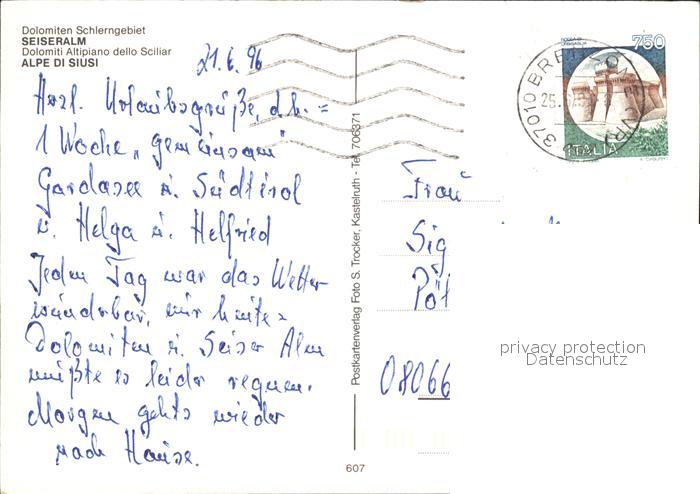 Dolomiten Schlerngebiet
SEISERALM
Dolomiti Altipiano dello Sciliar
ALPE DI SIUSI
21.6.96
Herzl. Urlaubsgrüße, d.h. =
1 Woche „gemeinsam"
Gardasee u. Südtirol
v. Helga u. Helfried
Jeden Tag war das Wetter
wunderbar, nur heute =
Dolomiten u. Seiser Alm
mußte es leider regnen.
Morgen gehts wieder
nach Hause.
Postkartenverlag Foto S. Trocker, Kastelruth - Tel. 706371
607
750
ITALIA
37010
Frau
Sig
Pöt
08066
privacy protection
Datenschutz